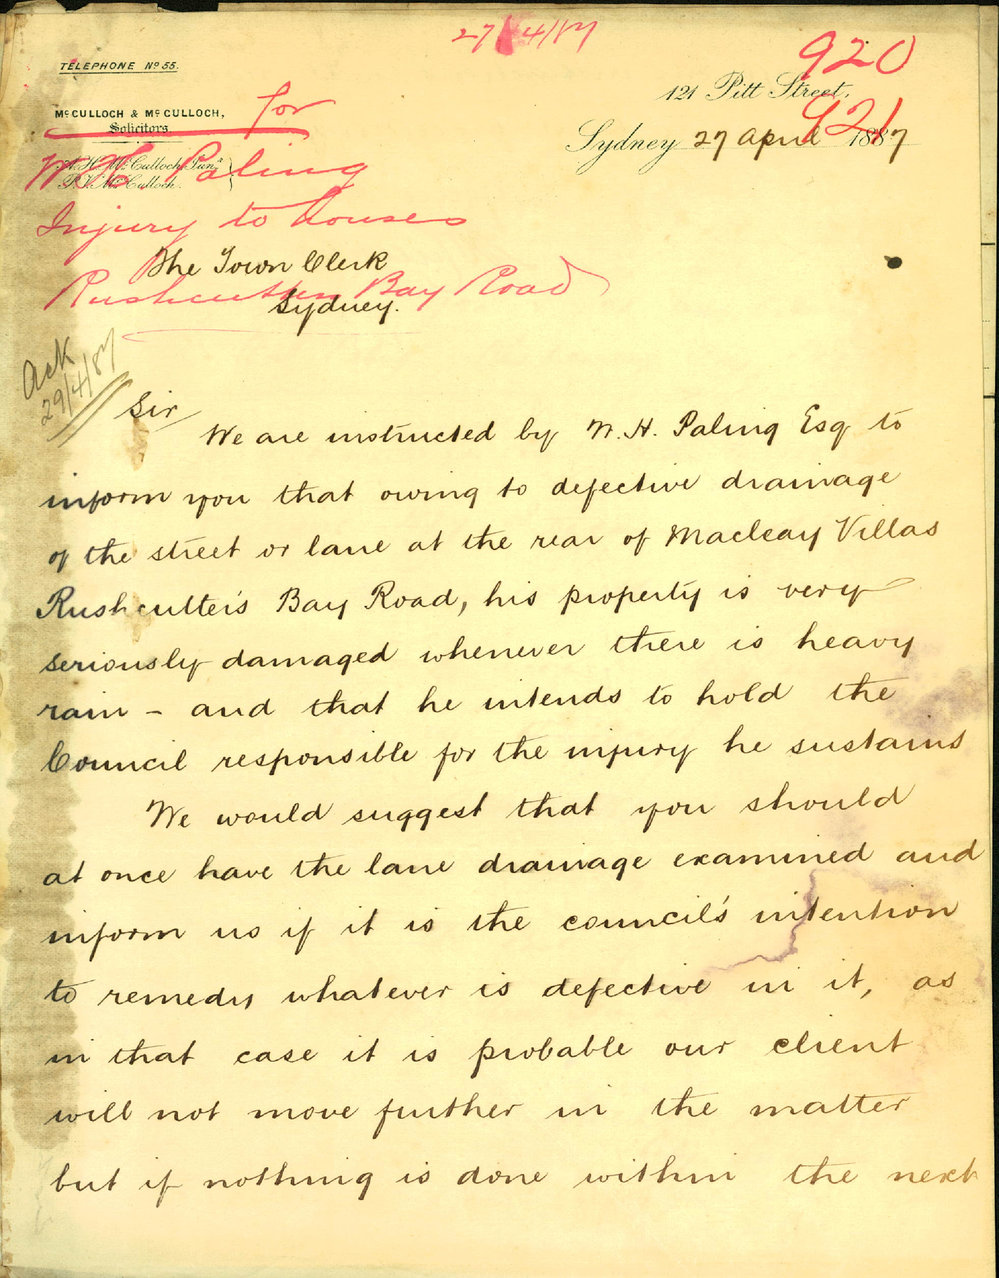 27/4/87
920
921
TELEPHONE No 55.
121 Pitt Street,
McCULLOCH & McCULLOCH,
Solicitors
for
Sydney 27 April 1887
A. H. McCulloch Junr
W H Paling
Injury to houses
The Town Clerk
Rushcutters Bay Road
Sydney.
Ack
29/4/87
Sir
We are instructed by W. H. Paling Esq to
inform you that owing to defective drainage
of the street or lane at the rear of Macleay Villas
Rushcutter's Bay Road, his property is very
seriously damaged whenever there is heavy
rain – and that he intends to hold the
Council responsible for the injury he sustains
We would suggest that you should
at once have the lane drainage examined and
inform us if it is the council's intention
to remedy whatever is defective in it, as
in that case it is probable our client
will not move further in the matter
but if nothing is done within the next